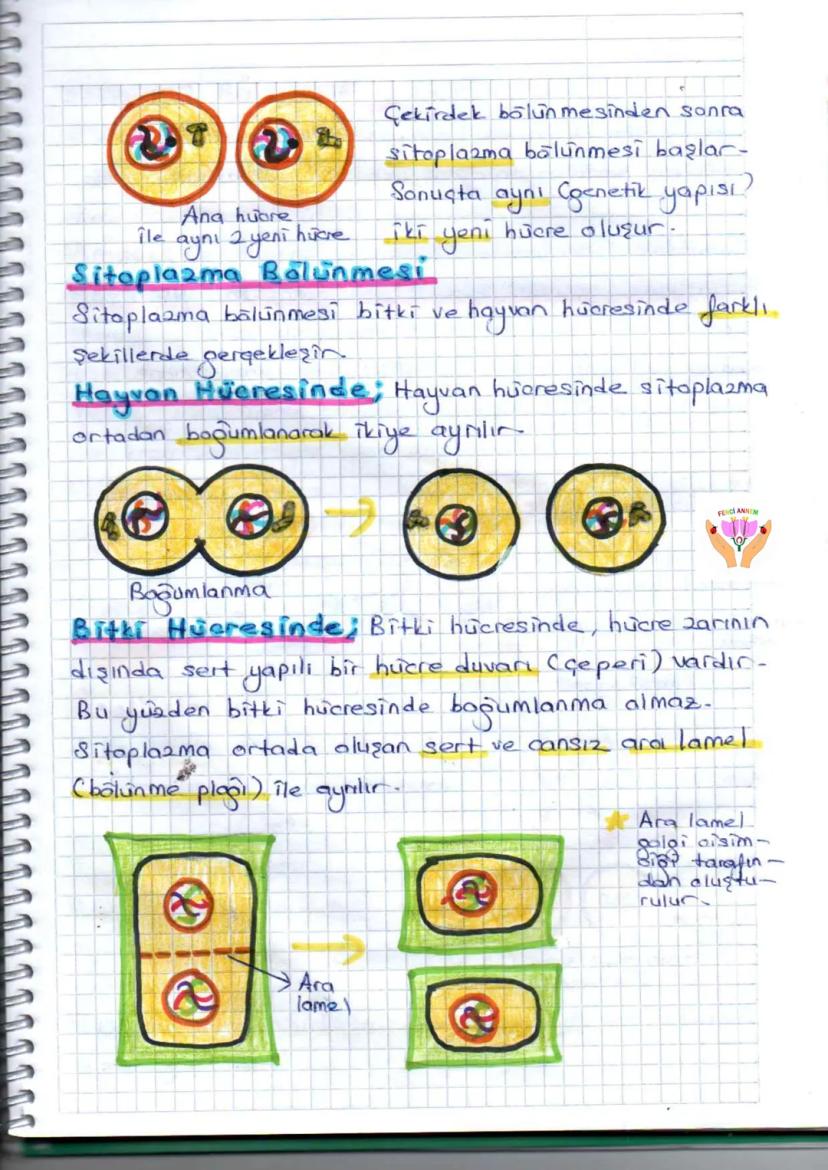 Çekirdek bölünmesinden sonra
sitoplazma bölünmesi başlar.
Sonuçta aynı (genetik yapısı)
iki yeni hücre oluşur.
Ana hücre
ile aynı 2 yeni hücre
Sitoplazma Bölünmesi
Sitoplazma bölünmesi bitki ve hayvan hücresinde farklı
şekillerde gerçekleşir.
Hayvan Hücresinde; Hayvan hücresinde sitoplazma
ortadan boğumlanarak ikiye ayrılır.
FENCİ ANNEM
Boğumlanma
Bitki Hücresinde; Bitki hücresinde, hücre zarının
dışında sert yapılı bir hücre duvarı (çeperi) vardır.
Bu yüzden bitki hücresinde boğumlanma olmaz.
Sitoplazma ortada oluşan sert ve cansız ara lamel
(bölünme plağı) ile ayrılır.
Ara lamel
golgi cisim-
ciği tarafın-
dan oluştu-
rulur.
Ara
lamel